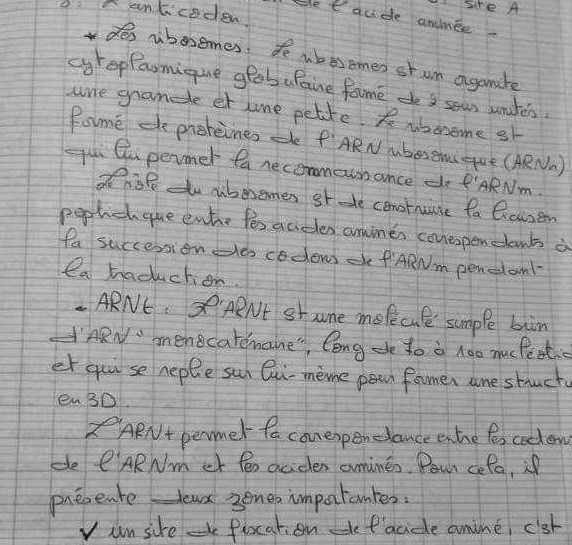 de l'acide aminée - site A
anticodon.
* Les ribosomes. Le ribosomes st un organite
cytoplasmique globulaine formé de 2 sous unités.
une grande et une petite. Le ribosome st
formé de protéines de l'ARN ribosomique (ARNn)
qui lui permet la reconnaissance de l'ARNm.
Le rôle du ribosomes st de construire la liaison
peptidique entre les acides aminés correspondants à
la succession des codons de l'ARNm pendant
la traduction.
- ARNt. L'ARNt st une molécule simple brin
d'ARN "monocaténaire", long de 70 à 100 nucléotid
et qui se replie sur lui-même pour former une structu
en 3D.
L'ARNt permet la correspondance entre les codons
de l'ARNm et les acides aminés. Pour cela, il
présente deux zones importantes:
✓ un site de fixation de l'acide aminé, c'st